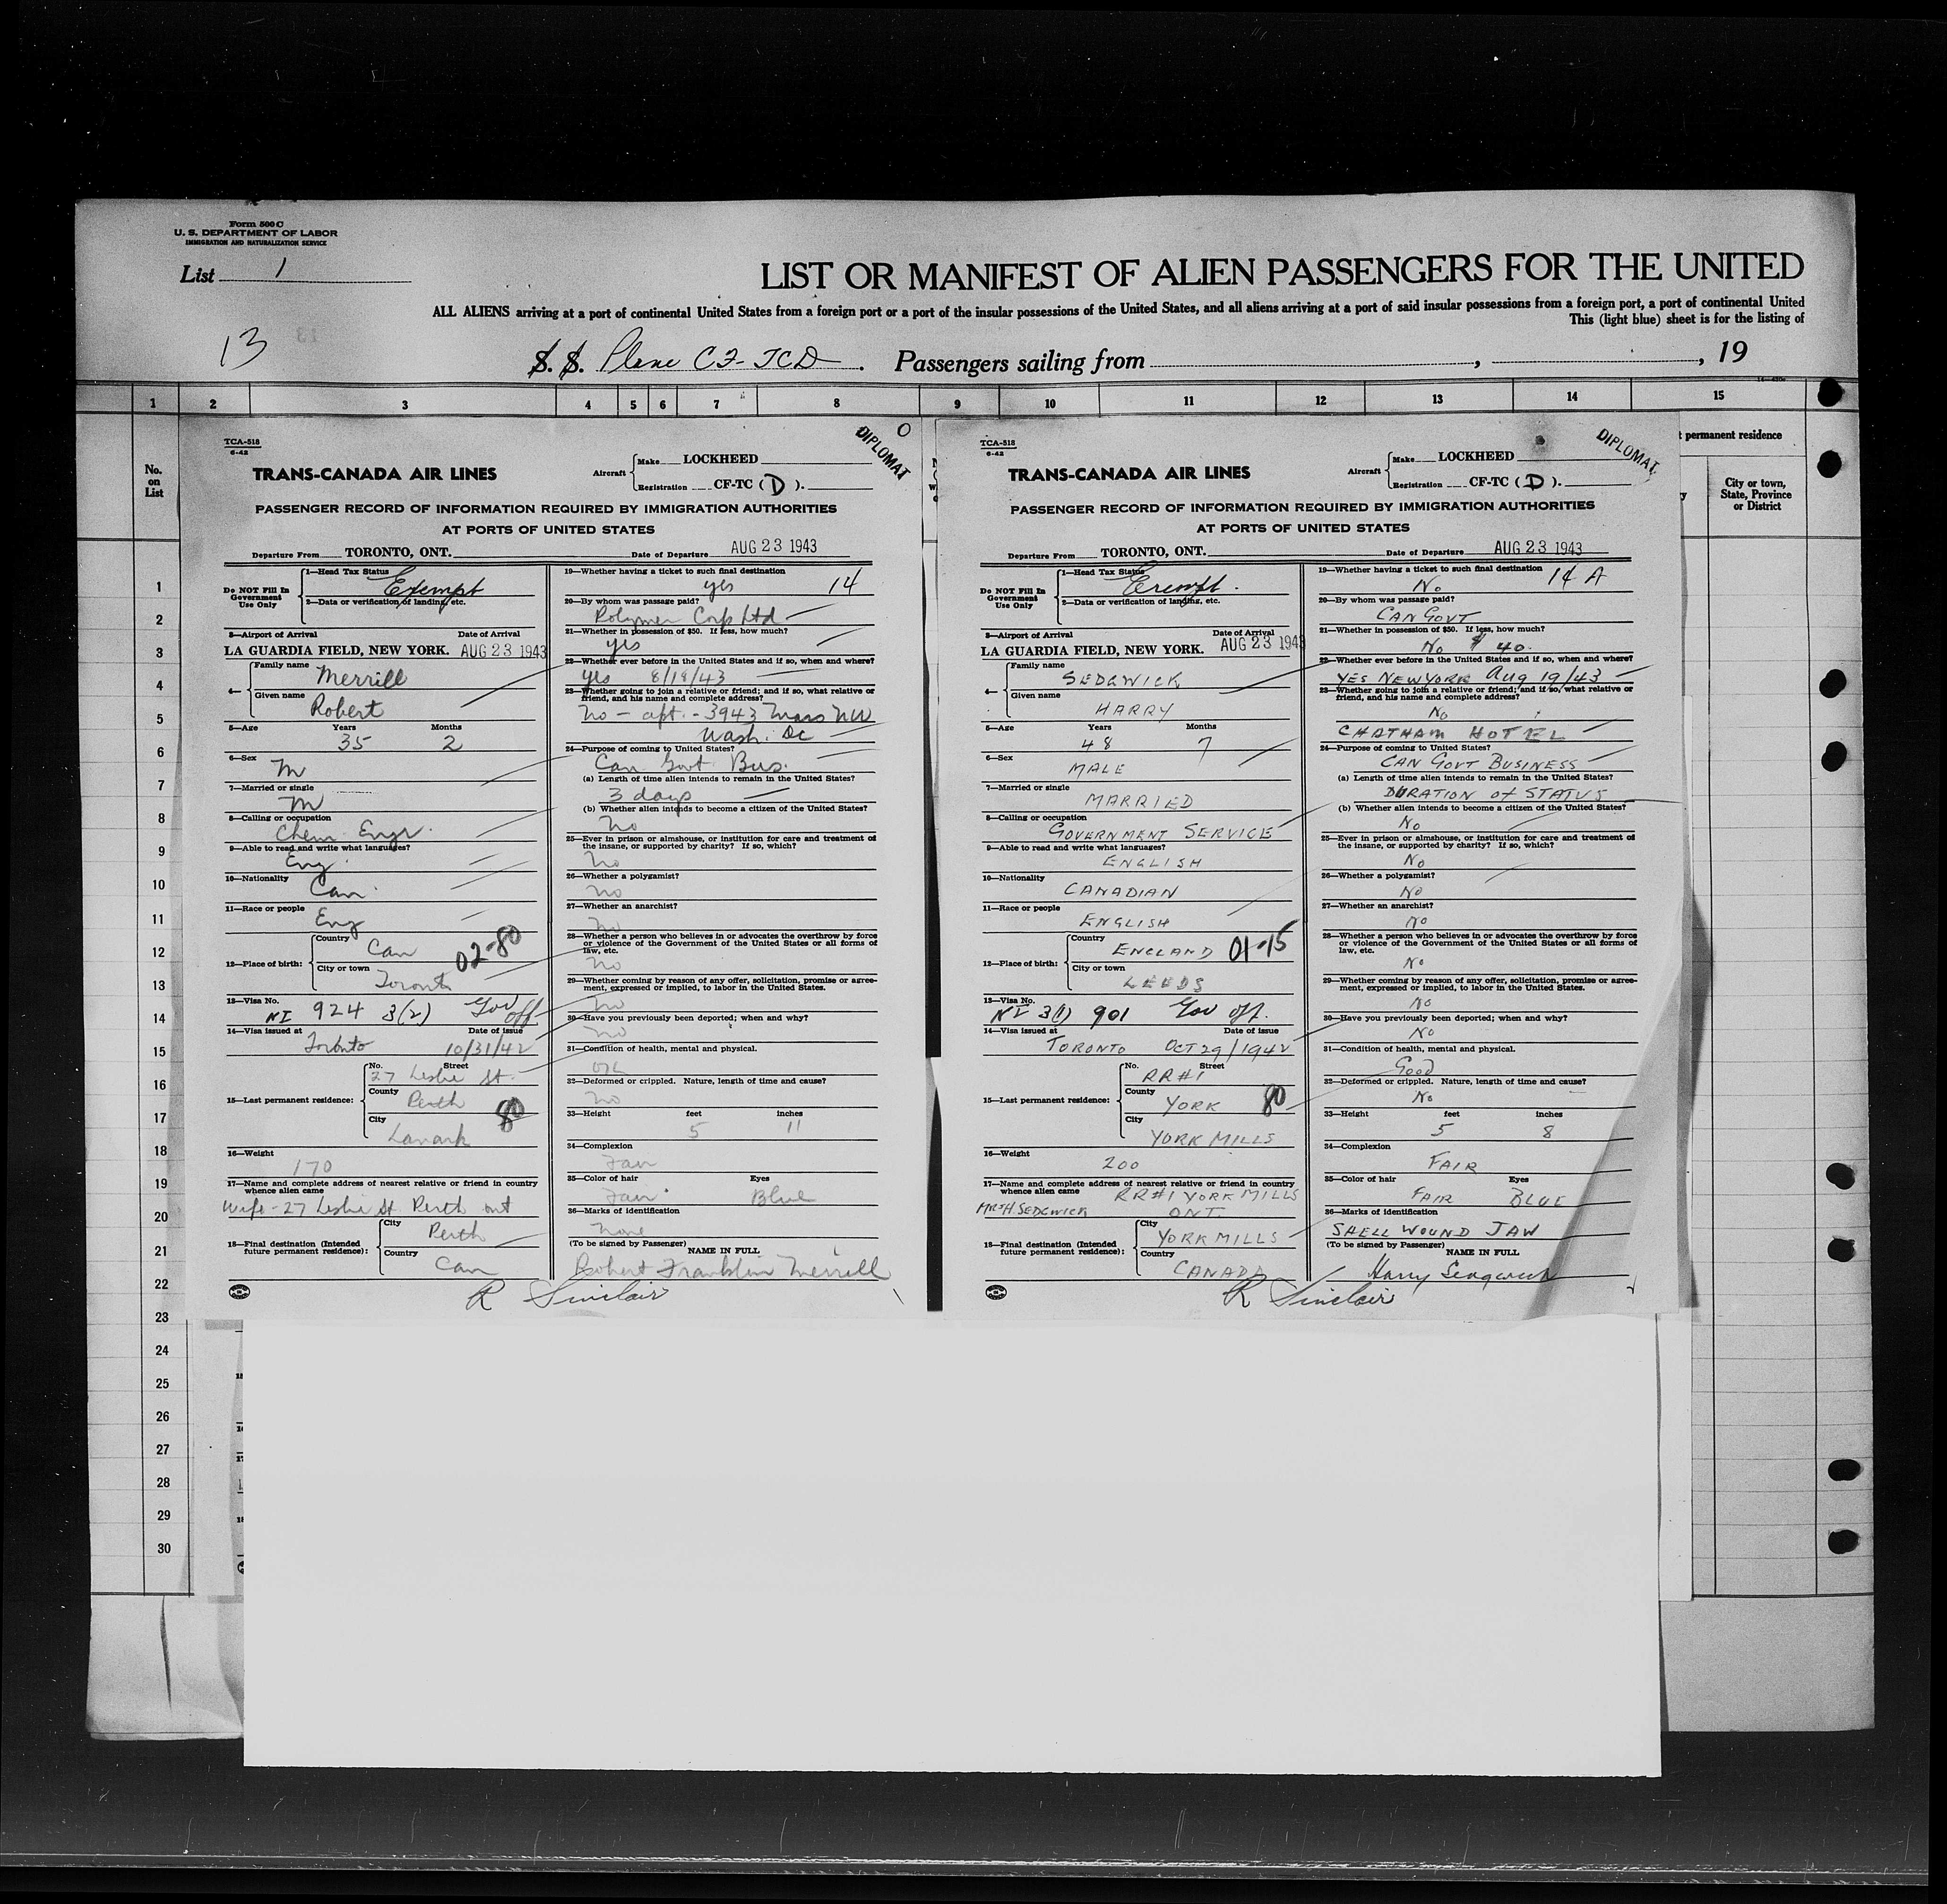 Form 500 C
U. S. DEPARTMENT OF LABOR
IMMIGRATION AND NATURALIZATION SERVICE
List 1
LIST OR MANIFEST OF ALIEN PASSENGERS FOR THE UNITED
ALL ALIENS arriving at a port of continental United States from a foreign port or a port of the insular possessions of the United States, and all aliens arriving at a port of said insular possessions from a foreign port, a port of continental United
This (light blue) sheet is for the listing of
13
S. S. Plane CF-TCD. Passengers sailing from , , 19
1 2 3 4 5 6 7 8 9 10 11 12 13 14 15
No. on List
permanent residence
City or town, State, Province or District
1
2
3
4
5
6
7
8
9
10
11
12
13
14
15
16
17
18
19
20
21
22
23
24
25
26
27
28
29
30
TCA-518
6-42
DIPLOMAT
TRANS-CANADA AIR LINES
Aircraft
Make LOCKHEED
Registration CF-TC ( D ).
PASSENGER RECORD OF INFORMATION REQUIRED BY IMMIGRATION AUTHORITIES
AT PORTS OF UNITED STATES
Departure From TORONTO, ONT. Date of Departure AUG 23 1943
Do NOT Fill In Government Use Only
1—Head Tax Status Exempt
2—Data or verification of landing, etc.
3—Airport of Arrival Date of Arrival
LA GUARDIA FIELD, NEW YORK. AUG 23 1943
4—
Family name Merrill
Given name Robert
5—Age Years 35 Months 2
6—Sex M
7—Married or single M
8—Calling or occupation Chem. Engr.
9—Able to read and write what languages? Eng.
10—Nationality Can.
11—Race or people Eng
12—Place of birth:
Country Can 02-80
City or town Toronto
13—Visa No. NI 924 3(2) Gov off
14—Visa issued at Toronto Date of issue 10/31/42
15—Last permanent residence:
No. Street 27 Leslie St.
County Perth 80
City Lanark
16—Weight 170
17—Name and complete address of nearest relative or friend in country whence alien came
Wife - 27 Leslie St Perth Ont
18—Final destination (Intended future permanent residence):
City Perth
Country Can
19—Whether having a ticket to such final destination yes 14
20—By whom was passage paid? Polymer Corp Ltd
21—Whether in possession of $50. If less, how much? yes
22—Whether ever before in the United States and if so, when and where? yes 8/18/43
23—Whether going to join a relative or friend; and if so, what relative or friend, and his name and complete address?
No - apt. - 3943 Mass NW
Wash. DC
24—Purpose of coming to United States? Can Govt Bus.
(a) Length of time alien intends to remain in the United States? 3 days
(b) Whether alien intends to become a citizen of the United States? No
25—Ever in prison or almshouse, or institution for care and treatment of the insane, or supported by charity? If so, which? No
26—Whether a polygamist? No
27—Whether an anarchist? No
28—Whether a person who believes in or advocates the overthrow by force or violence of the Government of the United States or all forms of law, etc. No
29—Whether coming by reason of any offer, solicitation, promise or agreement, expressed or implied, to labor in the United States. No
30—Have you previously been deported; when and why? No
31—Condition of health, mental and physical. OK
32—Deformed or crippled. Nature, length of time and cause? No
33—Height feet 5 inches 11
34—Complexion Fair
35—Color of hair Fair Eyes Blue
36—Marks of identification None
(To be signed by Passenger) NAME IN FULL
Robert Franklin Merrill
R Sinclair
TCA-518
6-42
DIPLOMAT
TRANS-CANADA AIR LINES
Aircraft
Make LOCKHEED
Registration CF-TC ( D ).
PASSENGER RECORD OF INFORMATION REQUIRED BY IMMIGRATION AUTHORITIES
AT PORTS OF UNITED STATES
Departure From TORONTO, ONT. Date of Departure AUG 23 1943
Do NOT Fill In Government Use Only
1—Head Tax Status Exempt.
2—Data or verification of landing, etc.
3—Airport of Arrival Date of Arrival
LA GUARDIA FIELD, NEW YORK. AUG 23 1943
4—
Family name SEDGWICK
Given name HARRY
5—Age Years 48 Months 7
6—Sex MALE
7—Married or single MARRIED
8—Calling or occupation GOVERNMENT SERVICE
9—Able to read and write what languages? ENGLISH
10—Nationality CANADIAN
11—Race or people ENGLISH
12—Place of birth:
Country ENGLAND 01-15
City or town LEEDS
13—Visa No. NI 3(1) 901 Gov off.
14—Visa issued at TORONTO Date of issue OCT 29/1942
15—Last permanent residence:
No. Street RR#1
County YORK 80
City YORK MILLS
16—Weight 200
17—Name and complete address of nearest relative or friend in country whence alien came RR#1 YORK MILLS
MRS H. SEDGWICK ONT.
18—Final destination (Intended future permanent residence):
City YORK MILLS
Country CANADA
19—Whether having a ticket to such final destination No 14 A
20—By whom was passage paid? CAN GOVT
21—Whether in possession of $50. If less, how much? No $ 40.
22—Whether ever before in the United States and if so, when and where? YES NEW YORK Aug 19/43
23—Whether going to join a relative or friend; and if so, what relative or friend, and his name and complete address? No
CHATHAM HOTEL
24—Purpose of coming to United States? CAN GOVT BUSINESS
(a) Length of time alien intends to remain in the United States? DURATION of STATUS
(b) Whether alien intends to become a citizen of the United States? No
25—Ever in prison or almshouse, or institution for care and treatment of the insane, or supported by charity? If so, which? No
26—Whether a polygamist? No
27—Whether an anarchist? No
28—Whether a person who believes in or advocates the overthrow by force or violence of the Government of the United States or all forms of law, etc. No
29—Whether coming by reason of any offer, solicitation, promise or agreement, expressed or implied, to labor in the United States. No
30—Have you previously been deported; when and why? No
31—Condition of health, mental and physical. Good
32—Deformed or crippled. Nature, length of time and cause? No
33—Height feet 5 inches 8
34—Complexion FAIR
35—Color of hair FAIR Eyes BLUE
36—Marks of identification SHELL WOUND JAW
(To be signed by Passenger) NAME IN FULL
Harry Sedgwick
R Sinclair